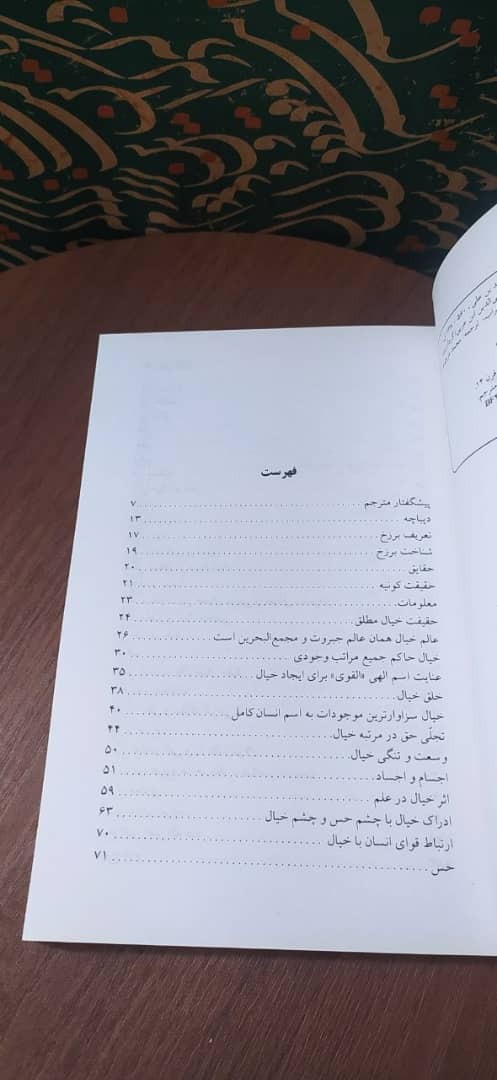 فهرست
پیشگفتار مترجم ........ ۷
دیباچه ........ ۱۳
تعریف برزخ ........ ۱۷
شناخت برزخ ........ ۱۹
حقایق ........ ۲۰
حقیقت کونیه ........ ۲۱
معلومات ........ ۲۳
حقیقت خیال مطلق ........ ۲۴
عالم خیال همان عالم جبروت و مجمع‌البحرین است ........ ۲۶
خیال حاکم جمیع مراتب وجودی ........ ۳۰
عنایت اسم الهی «القوی» برای ایجاد خیال ........ ۳۵
خلق خیال ........ ۳۸
خیال سزاوارترین موجودات به اسم انسان کامل ........ ۴۰
تجلّی حق در مرتبه خیال ........ ۴۴
وسعت و تنگی خیال ........ ۵۰
اجسام و اجساد ........ ۵۱
اثر خیال در علم ........ ۵۹
ادراک خیال با چشم حس و چشم خیال ........ ۶۳
ارتباط قوای انسان با خیال ........ ۷۰
حس ........ ۷۱